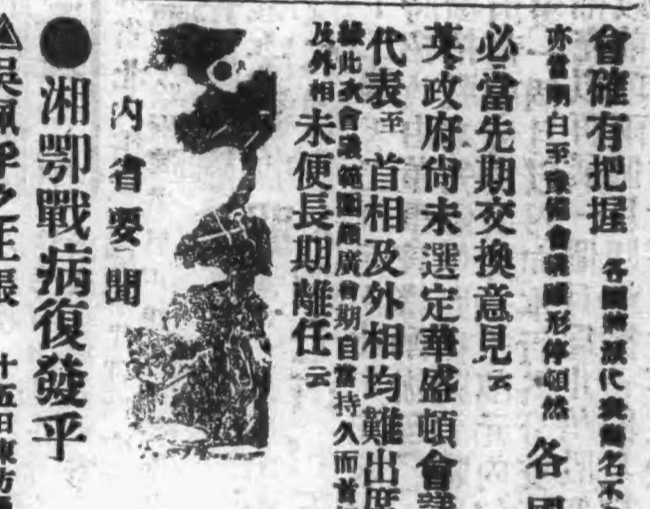 會確有把握
亦當明白至豫備會議雖形停頓然
各國
必當先期交換意見云
英政府尙未選定華盛頓會議
代表至首相及外相均難出席
緣此次會議範圍頗廣會期自當持久而首
及外相未便長期離任云
內省要聞
●湘鄂戰病復發乎
△吳佩孚之主張
十五日東方